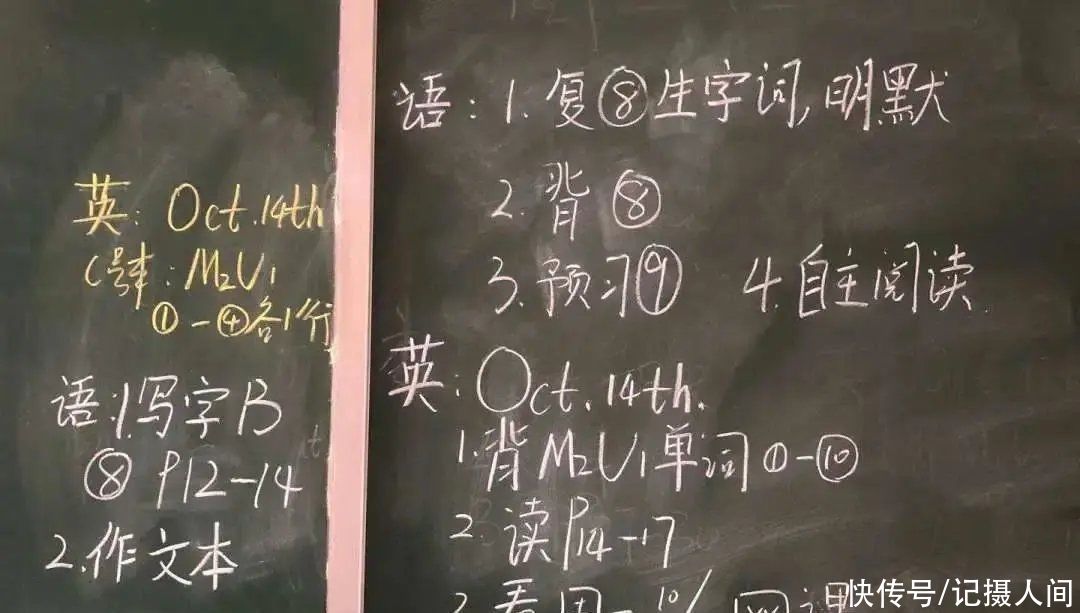 英: Oct.14th
C号本: M2U1
①-④各1行
语:1.写字B
⑧ P12-14
2.作文本
语: 1.复⑧生字词,明默
2.背⑧
3.预习⑨ 4.自主阅读
英: Oct.14th.
1.背M2U1单词①-⑩
2.读P14-17
3.看周一10/ 网课
快传号/记摄人间